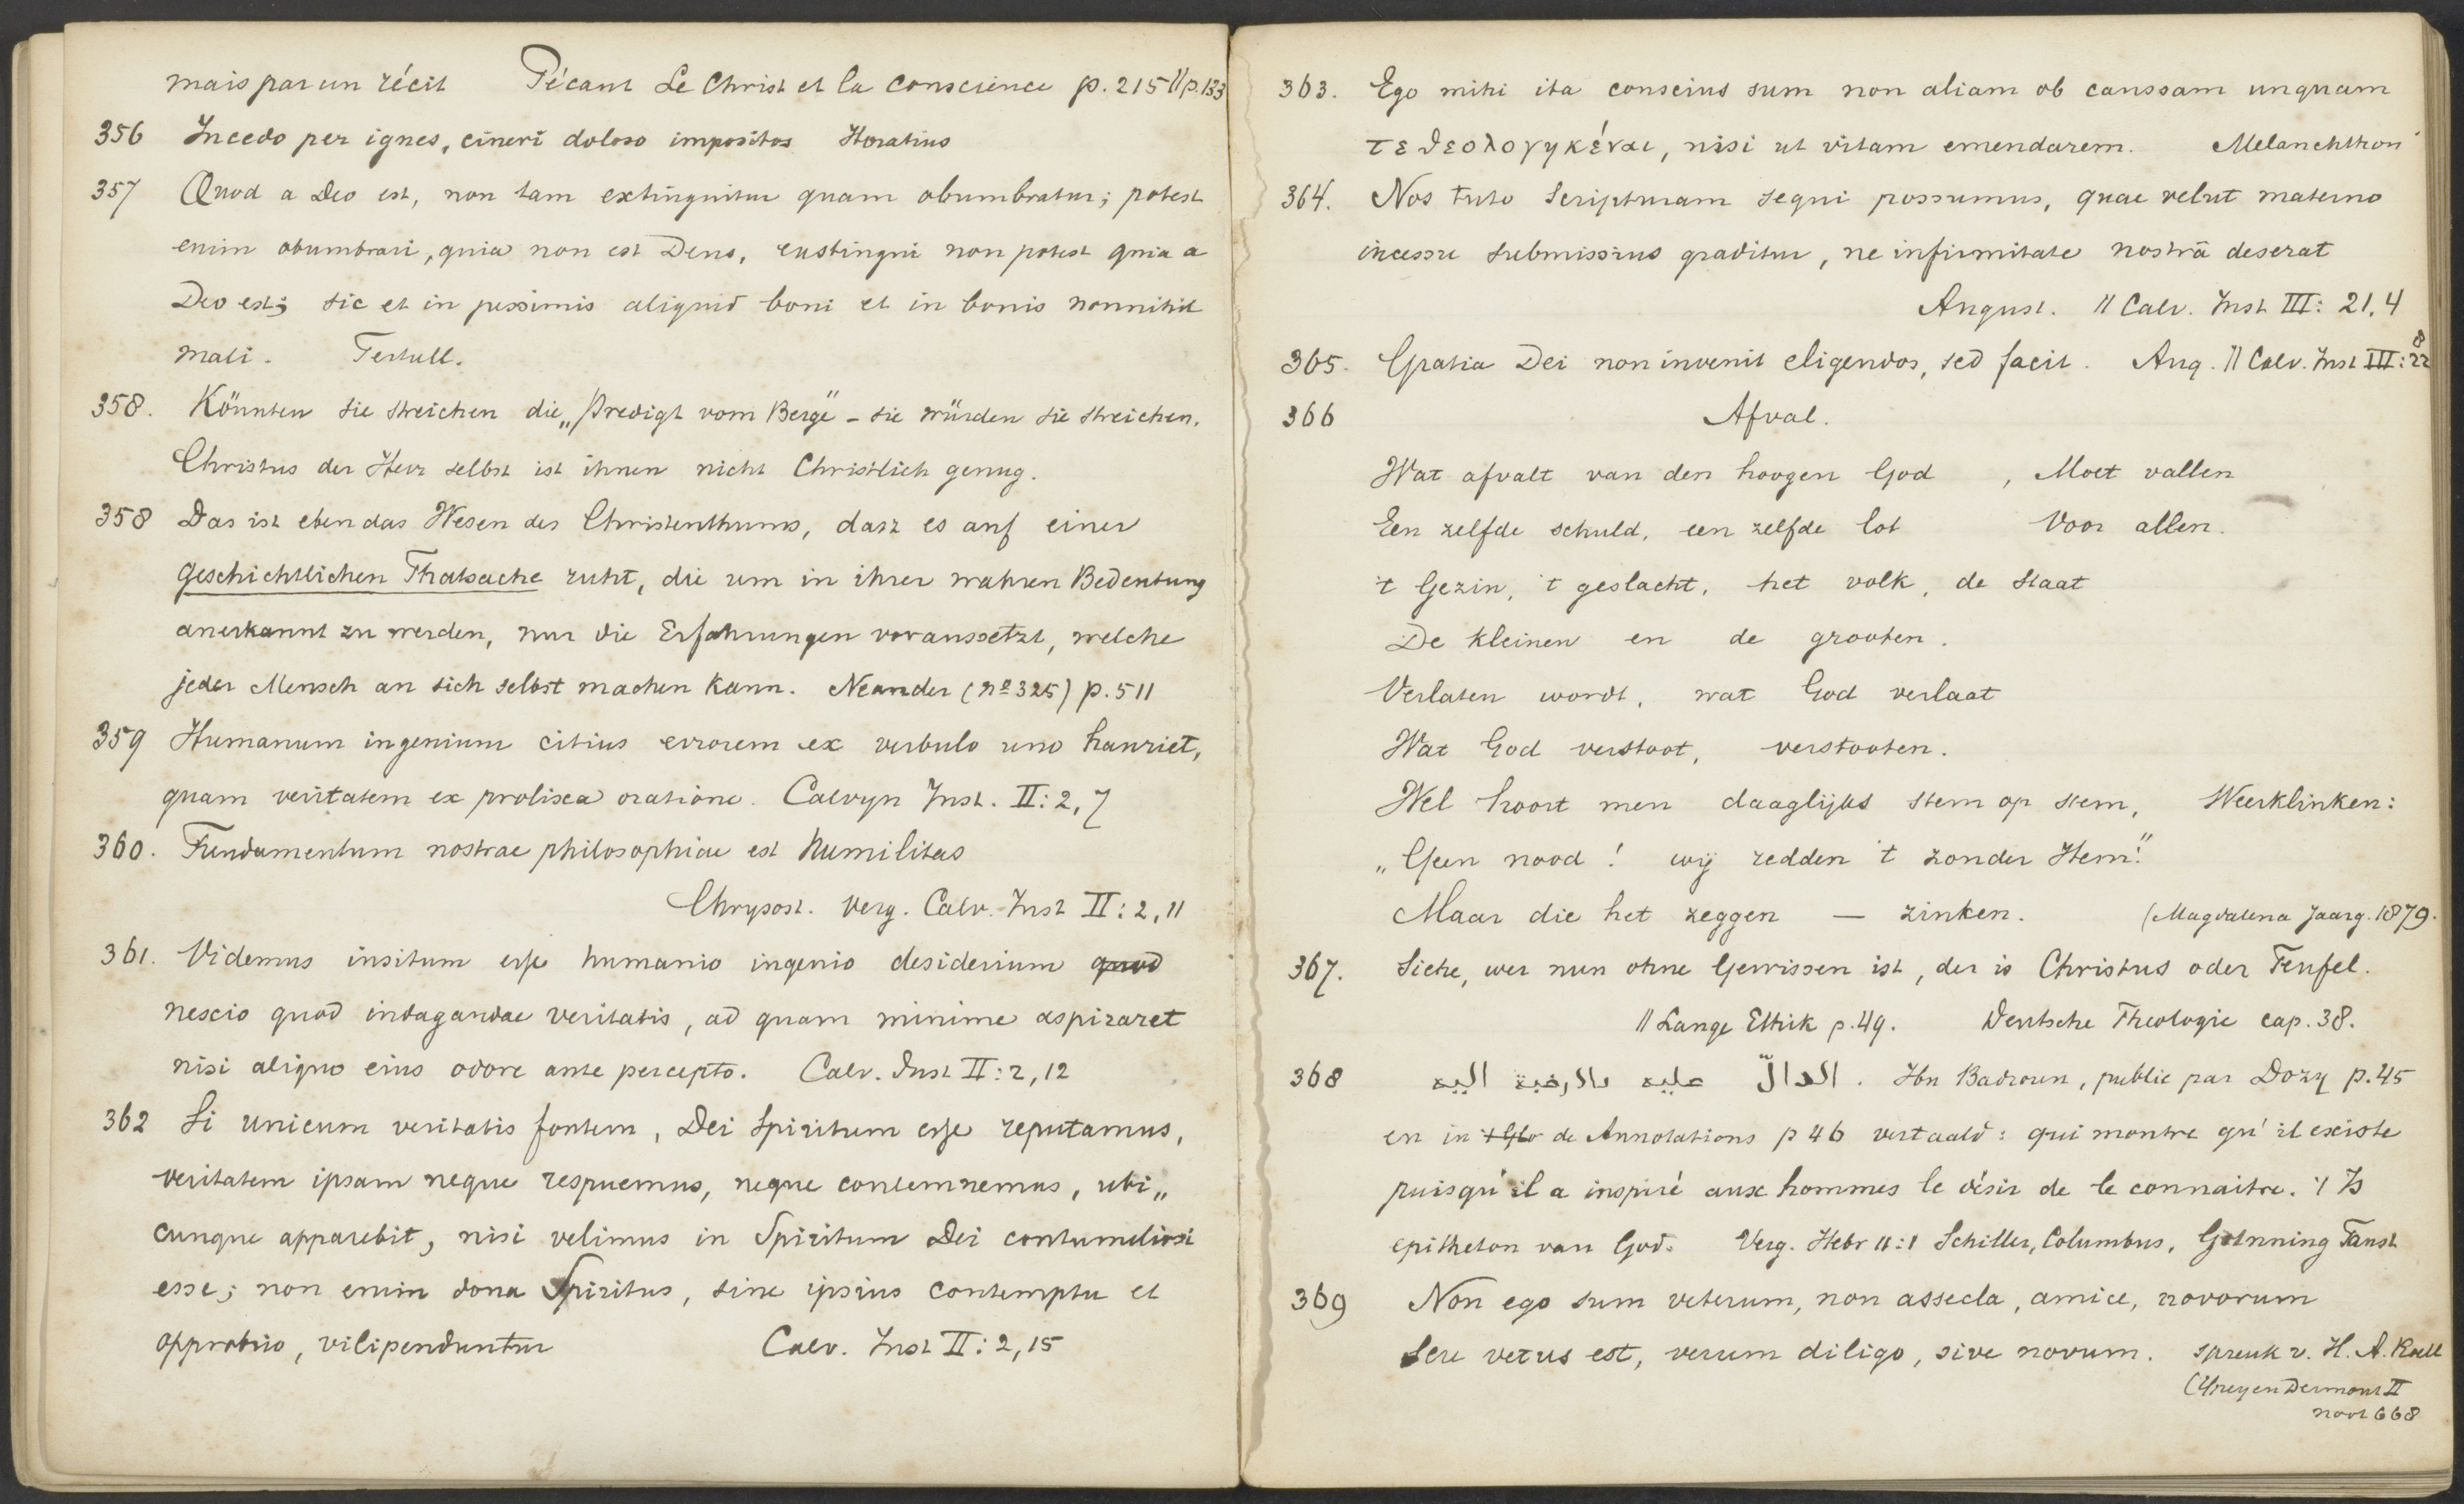 mais par un récit Pécaut Le Christ et la Conscience p. 215 // p. 133
356 Incedo per ignes, cineri doloso impositos Horatius
357 Quod a Deo est, non tam extinguitur quam obumbratur; potest
enim obumbrari, quia non est Deus, exstingui non potest quia a
Deo est; sic et in pessimis aliquid boni et in bonis nonnihil
mali. Tertull.
358. Könnten sie streichen die „Predigt vom Berge" – sie würden sie streichen.
Christus der Herr selbst ist ihnen nicht Christlich genug.
358 Das ist eben das Wesen des Christenthums, dasz es auf einer
geschichtlichen Thatsache ruht, die um in ihrer wahren Bedeutung
anerkannt zu werden, nur die Erfahrungen voraussetzt, welche
jeder Mensch an sich selbst machen kann. Neander (nº 325) p. 511
359 Humanum ingenium citius errorem ex verbulo uno hauriet,
quam veritatem ex prolixa oratione. Calvyn Inst. II: 2, 7
360. Fundamentum nostrae philosophiae est humilitas
Chrysost. verg. Calv. Inst II: 2, 11
361. Videmus insitum esse humanio ingenio desiderium quod
nescio quod indagandae veritatis, ad quam minime aspiraret
nisi aliquo eius odore ante percepto. Calv. Inst II: 2, 12
362 Si unicum veritatis fontem, Dei Spiritum esse reputamus,
veritatem ipsam neque respuemus, neque contemnemus, ubi„
cunque apparebit, nisi velimus in Spiritum Dei contumeliosi
esse; non enim dona Spiritus, sine ipsius contemptu et
opprobrio, vilipenduntur Calv. Inst II: 2, 15
363. Ego mihi ita conscius sum non aliam ob caussam unquam
τεθεολογηκέναι, nisi ut vitam emendarem. Melanchthon
364. Nos tuto Scripturam sequi possumus, quae velut materno
incessu submissius graditur, ne infirmitate nostrā deserat
August. // Calv. Inst III: 21, 4
365. Gratia Dei non invenit eligendos, sed facit. Aug. // Calv. Inst III: 22 8
366 Afval.
Wat afvalt van den hoogen God , Moet vallen
Een zelfde schuld, een zelfde lot Voor allen.
't Gezin, 't geslacht, het volk, de Staat
De kleinen en de grooten.
Verlaten wordt, wat God verlaat
Wat God verstoot, verstooten.
Wel hoort men daaglijks stem op stem, Weerklinken:
„Geen nood! wij redden 't zonder Hem!"
Maar die het zeggen — zinken. (Magdalena Jaarg. 1879.
367. Siehe, wer nun ohne Gewissen ist, der is Christus oder Teufel.
// Lange Ethik p. 49. Deutsche Theologie cap. 38.
368 الدالّ عليه بالرغبة اليه . Ibn Badroun, publié par Dozy p. 45
en in de Annotations p 46 vertaald: qui montre qu'il existe
puisqu'il a inspiré aux hommes le désir de le connaitre. 't Is
epitheton van God. Verg. Hebr 11:1 Schiller, Columbus, Gunning Faust
369 Non ego sum veterum, non assecla, amice, novorum
Seu vetus est, verum diligo, sive novum. spreuk v. H. A. Roëll
(Ypey en Dermout II
noot 668